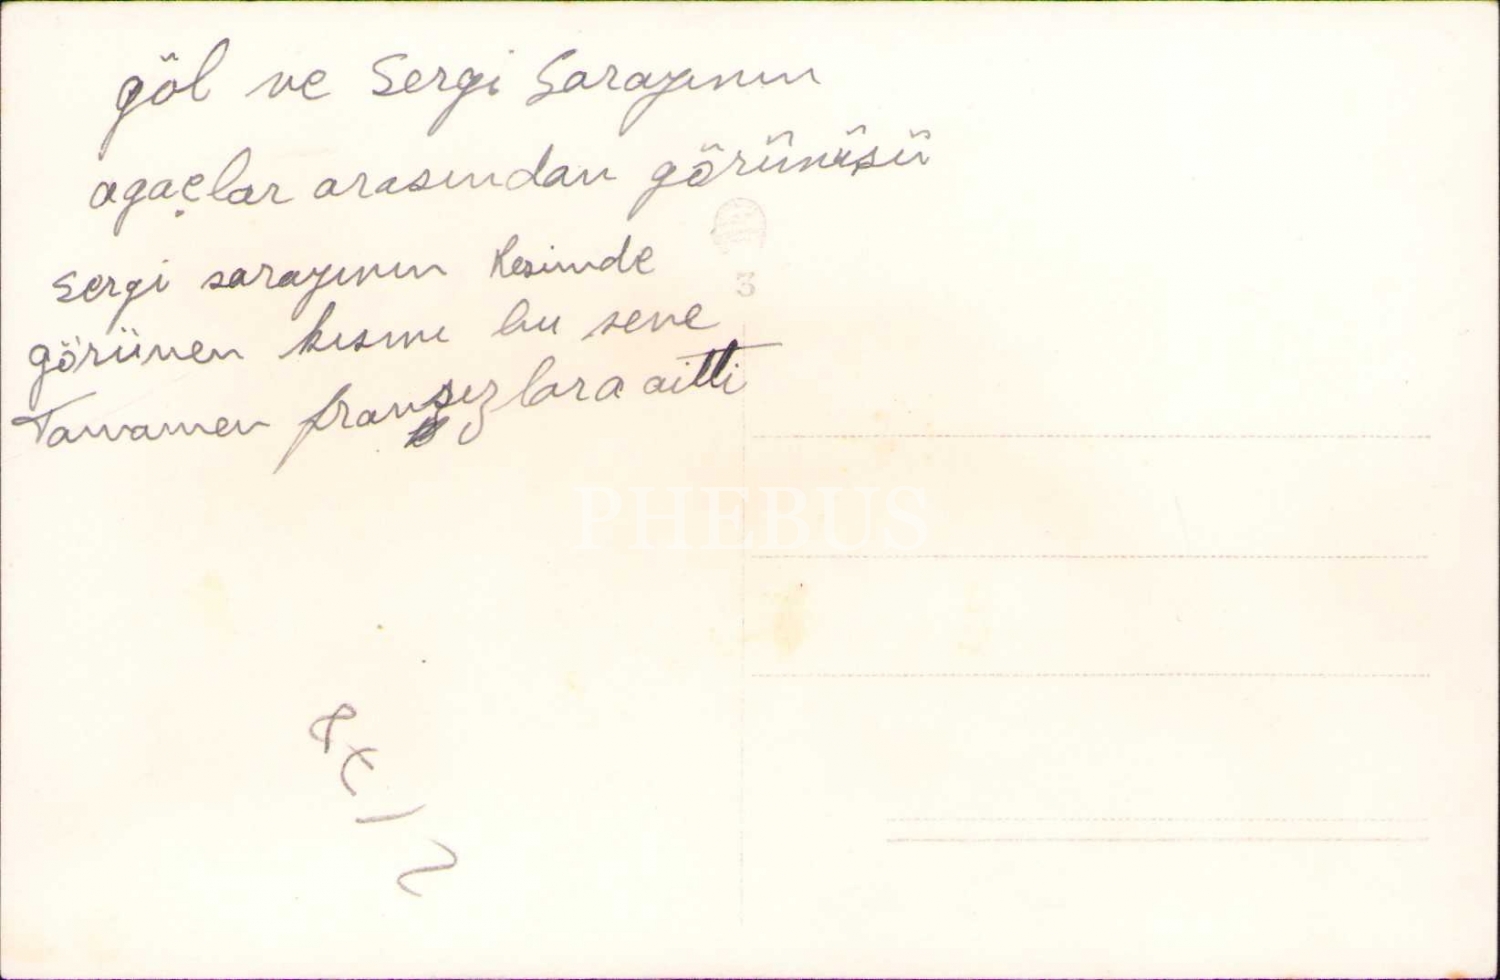 göl ve Sergi Sarayının
agaçlar arasından görünüşü
3
Sergi sarayının Resimde
görünen kısmı bu sene
Tamamen fransızlara aitti
PHEBUS